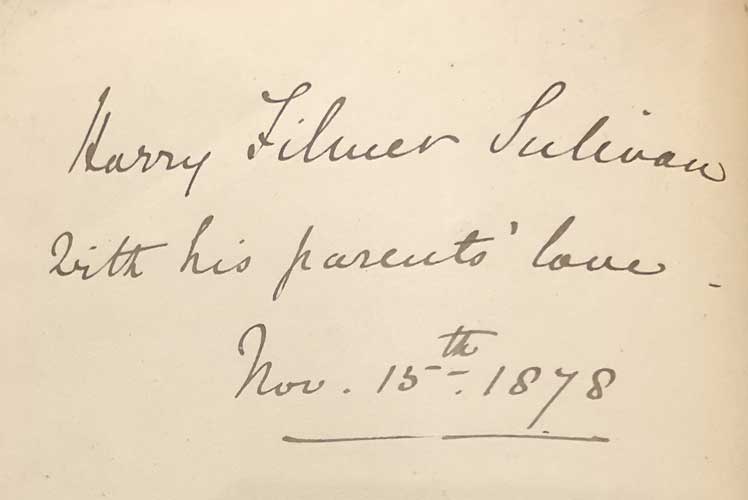 Harry Filmer Sulivan
With his parents' love.
Nov. 15th. 1878